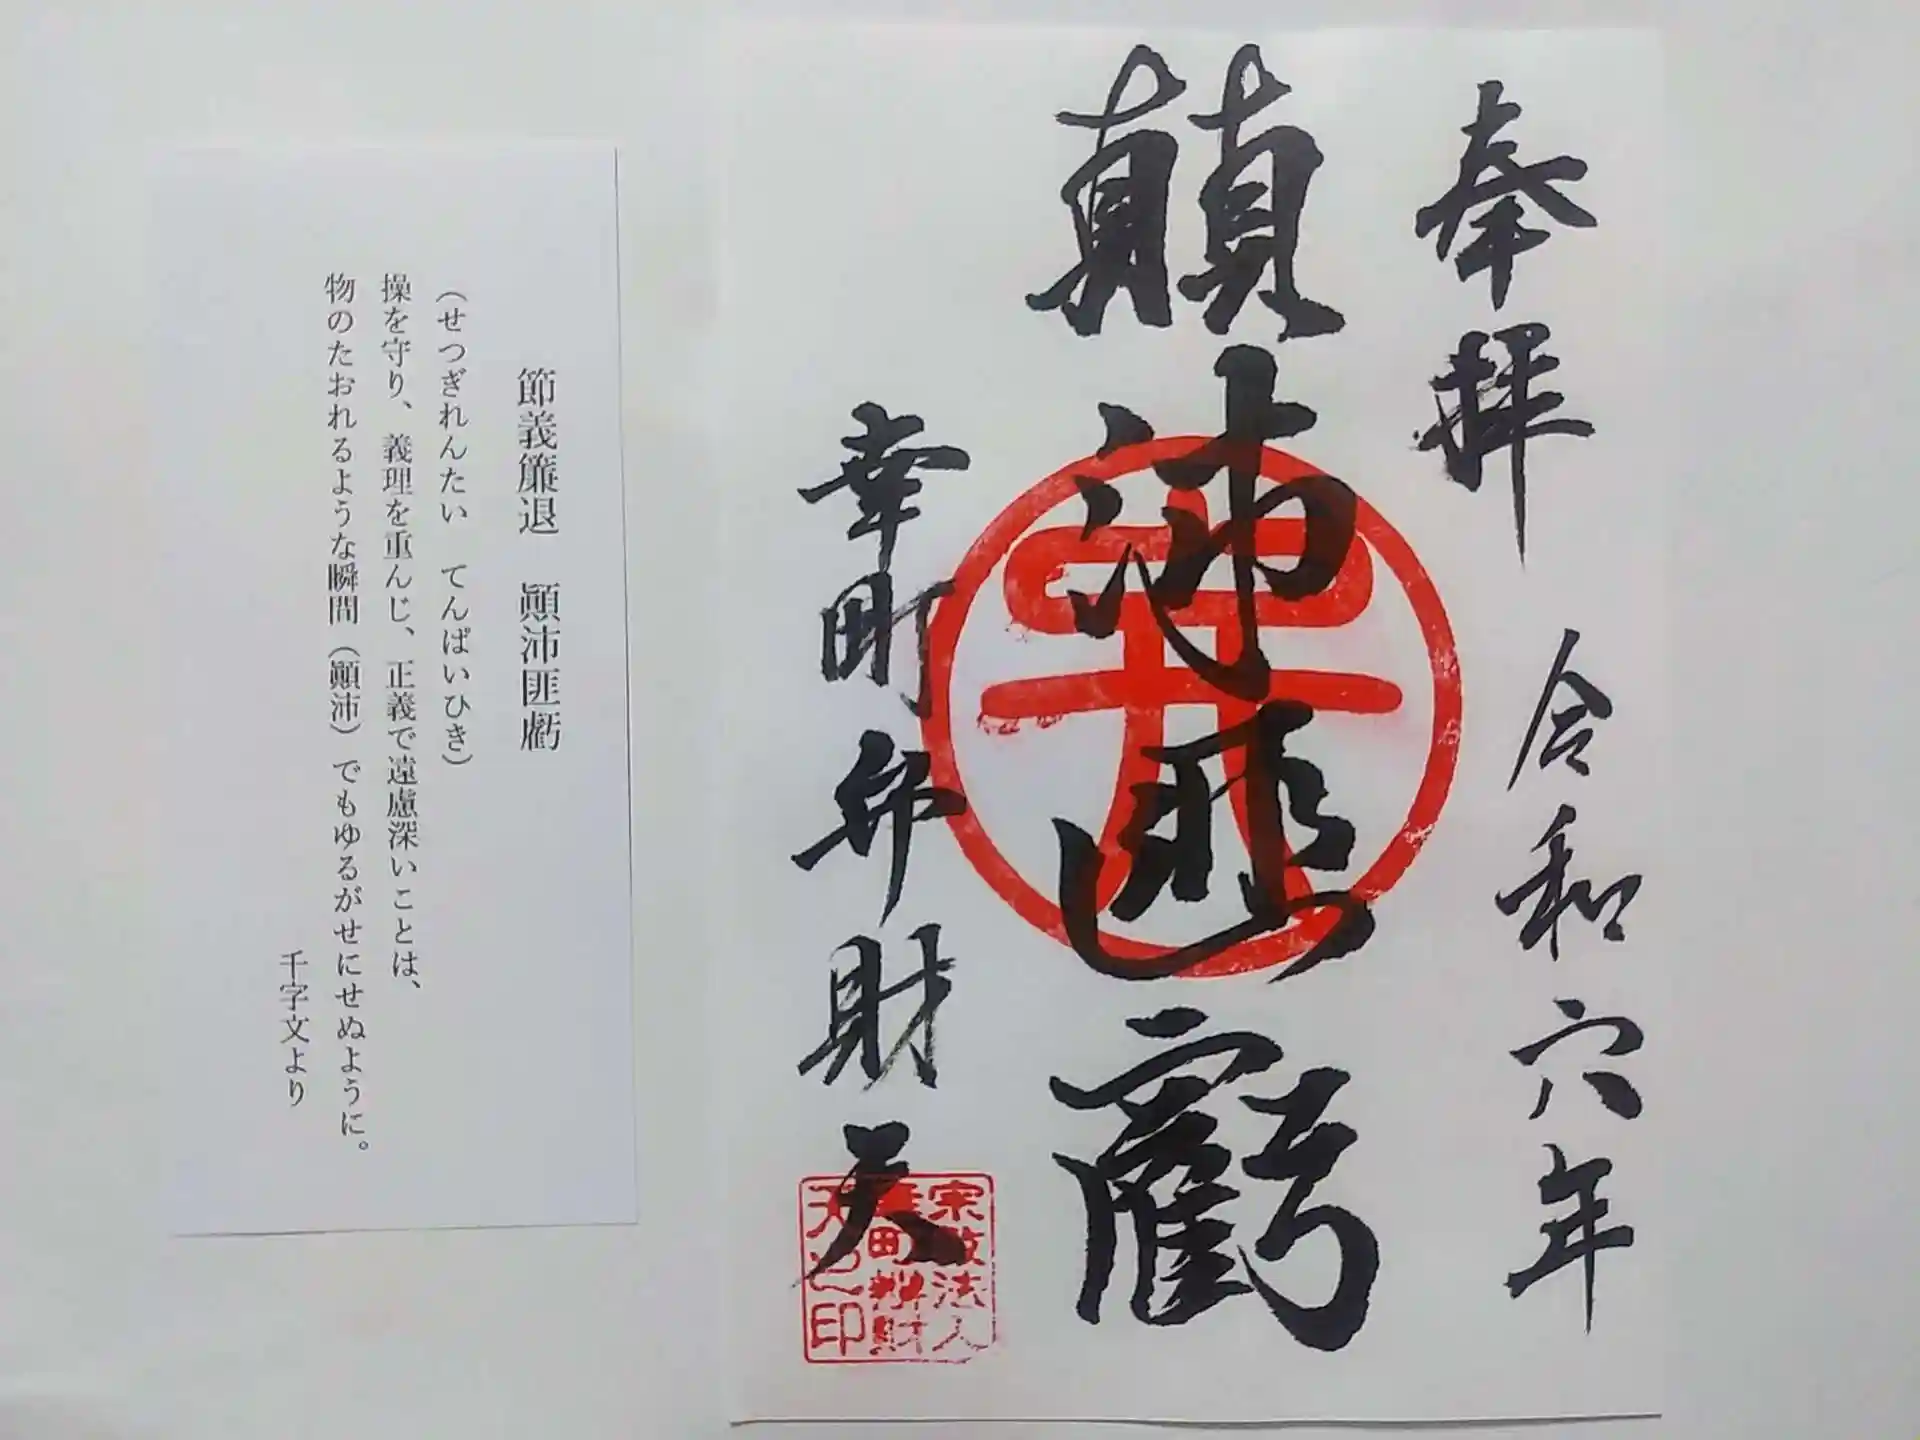 奉拝 令和六年
顚沛匪虧
幸町弁財天
宗教法人
幸町辨財
天之印
節義簾退 顚沛匪虧
(せつぎれんたい てんぱいひき)
操を守り、義理を重んじ、正義で遠慮深いことは、
物のたおれるような瞬間(顚沛)でもゆるがせにせぬように。
千字文より